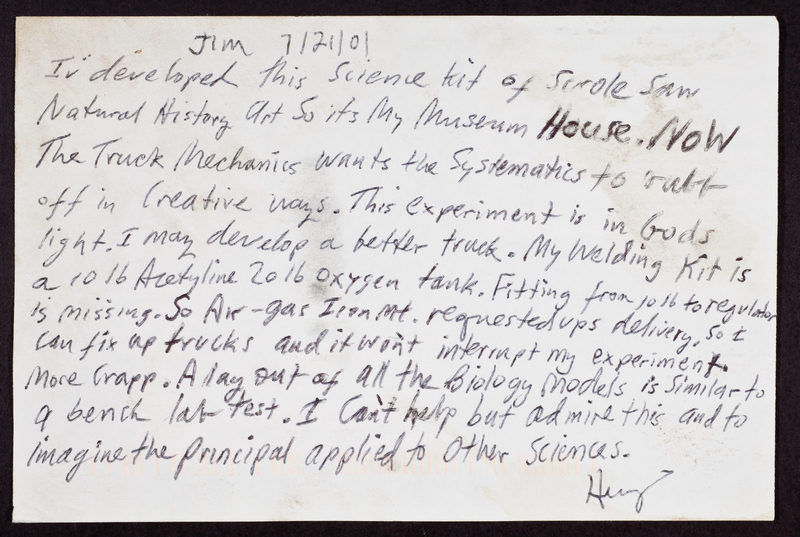 Jim 7/21/01
Iv developed this Science kit of Scrole Saw
Natural History Art So its My Museum House. NoW
The Truck Mechanics wants the Systematics to rubb
off in Creative ways. This experiment is in Gods
light. I may develop a better truck. My Welding Kit is
a 10 lb Acetyline 20 lb oxygen tank. Fitting from 10 lb to regulator
is missing. So Air-gas Iron Mt. requested ups delivery, So I
can fix up trucks and it won't interrupt my experiment.
More Crapp. A lay out of all the Biology Models is similar to
a bench lab test. I Can't help but admire this and to
imagine the principal applied to Other Sciences.